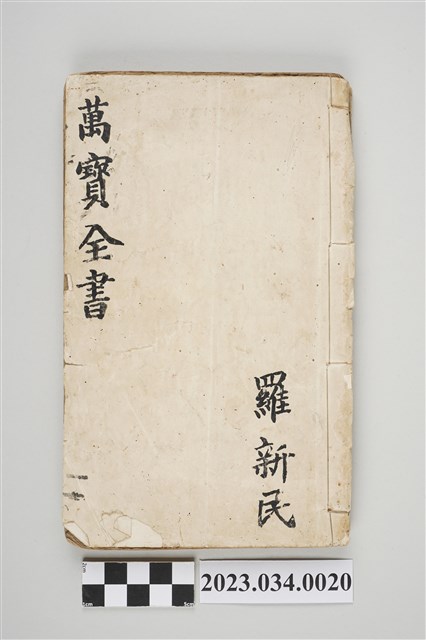 萬寶全書
羅新民
2023.034.0020
0cm
5cm